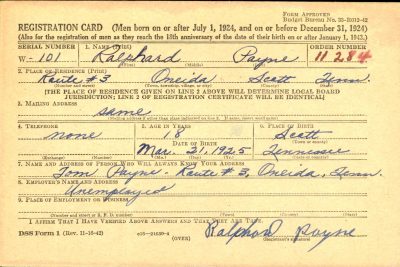 FORM APPROVED
Budget Bureau No. 33-R012-42
REGISTRATION CARD (Men born on or after July 1, 1924, and on or before December 31, 1924)
(Also for the registration of men as they reach the 18th anniversary of the date of their birth on or after January 1, 1943.)
SERIAL NUMBER 1. NAME (Print) ORDER NUMBER
W- 101 Ralphard Payne 11284
(First) (Middle) (Last)
2. PLACE OF RESIDENCE (Print)
Route #3 Oneida Scott Tenn.
(Number and street) (Town, township, village, or city) (County) (State)
[THE PLACE OF RESIDENCE GIVEN ON LINE 2 ABOVE WILL DETERMINE LOCAL BOARD
JURISDICTION; LINE 2 OF REGISTRATION CERTIFICATE WILL BE IDENTICAL]
3. MAILING ADDRESS
same
4. TELEPHONE 5. AGE IN YEARS 6. PLACE OF BIRTH
none 18 Scott
DATE OF BIRTH (Town or county)
Mar. 21, 1925 Tennessee
(Exchange) (Number) (Mo.) (Day) (Yr.) (State or country)
7. NAME AND ADDRESS OF PERSON WHO WILL ALWAYS KNOW YOUR ADDRESS
Tom Payne - Route #3, Oneida, Tenn.
8. EMPLOYER'S NAME AND ADDRESS
Unemployed
9. PLACE OF EMPLOYMENT OR BUSINESS
(Number and street or R. F. D. number) (Town) (County) (State)
I AFFIRM THAT I HAVE VERIFIED ABOVE ANSWERS AND THAT THEY ARE TRUE.
DSS Form 1 (Rev. 11-16-42) (OVER) Ralphard Payne
(Registrant's signature)